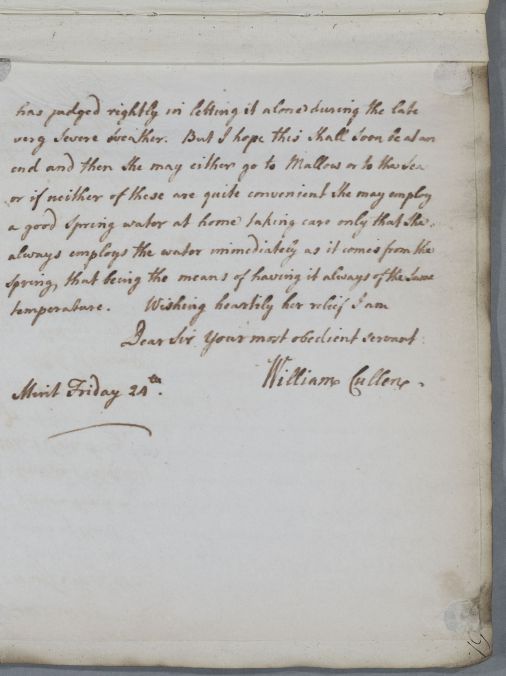 has judged rightly in letting it alone during the late
very severe weather. But I hope this shall soon be at an
end and then she may either go to Mallow or to the Sea
or if neither of these are quite convenient she may employ
a good spring water at home taking care only that she
always employs the water immediately as it comes from the
spring, that being the means of having it always of the same
temperature. Wishing heartily her relief I am
Dear Sir Your most obedient servant
William Cullen.
Friday 24th.
19